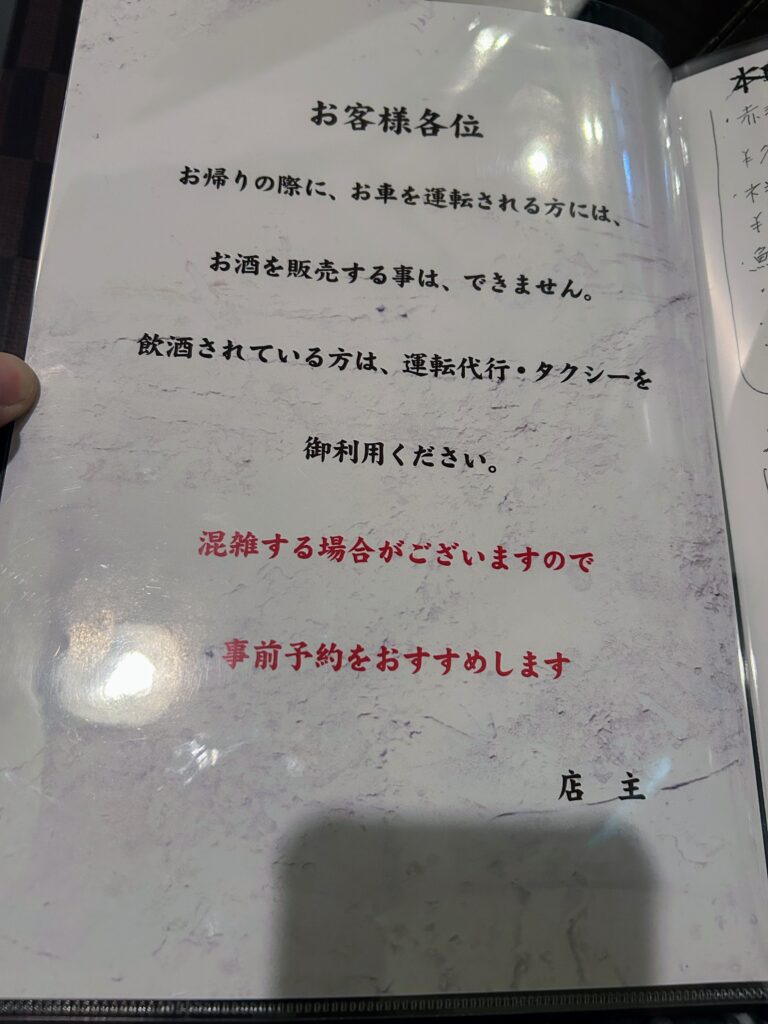 お客様各位
お帰りの際に、お車を運転される方には、
お酒を販売する事は、できません。
飲酒されている方は、運転代行・タクシーを
御利用ください。
混雑する場合がございますので
事前予約をおすすめします
店 主